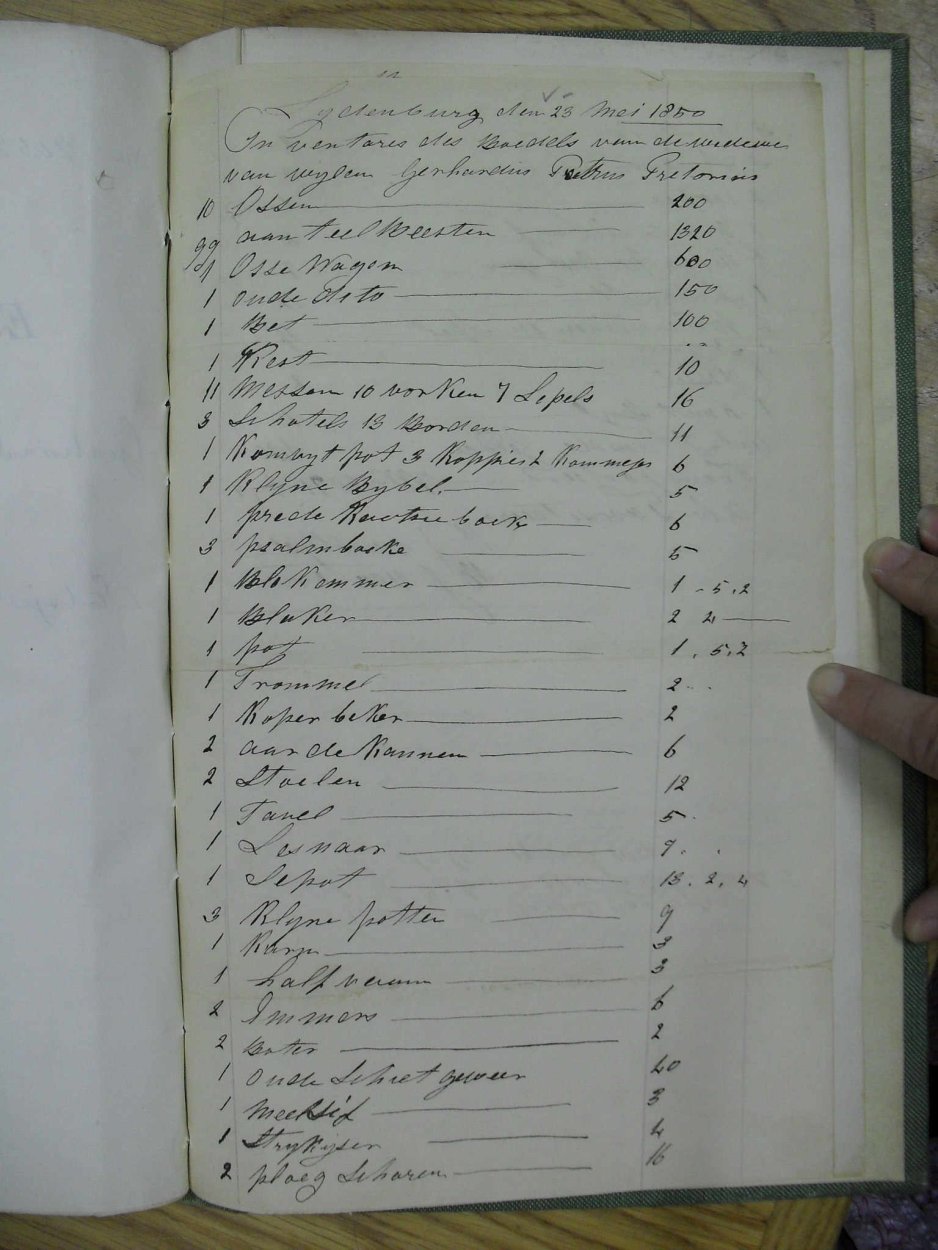 Lydenburg den 23 Mei 1850
In ventaris des Boedels van de weduwe
van wylen Gerhardus Petrus Pretorius
10 Ossen 200
99 aan teel Beesten 1320
1 Osse Wagen 600
1 oude dito 150
1 Bet 100
1 Kest 10
11 Messen 10 vorken 7 Lepels 16
3 Schotels 13 Borden 11
1 Komvyt pot 3 Koppies 2 Kommejes 6
1 Klyne Bybel 5
1 prede Boek 6
3 psalmboeke 5
1 Kammer 1 . 5 . 2
1 Blaker 2 2
1 pot 1 . 5 . 2
1 Trommel 2
1 Koper beker 2
2 aarde Kannen 6
2 Stoelen 12
1 Tavel 5
1 Lesnaar 7
1 Sepot 13 . 2 . 4
3 Klyne potten 9
1 Karn 3
1 half 3
2 Emmers 6
2 2
1 oude Schiet geweer 20
1 meelsif 3
1 Strykyser 4
2 ploeg Scharen 16